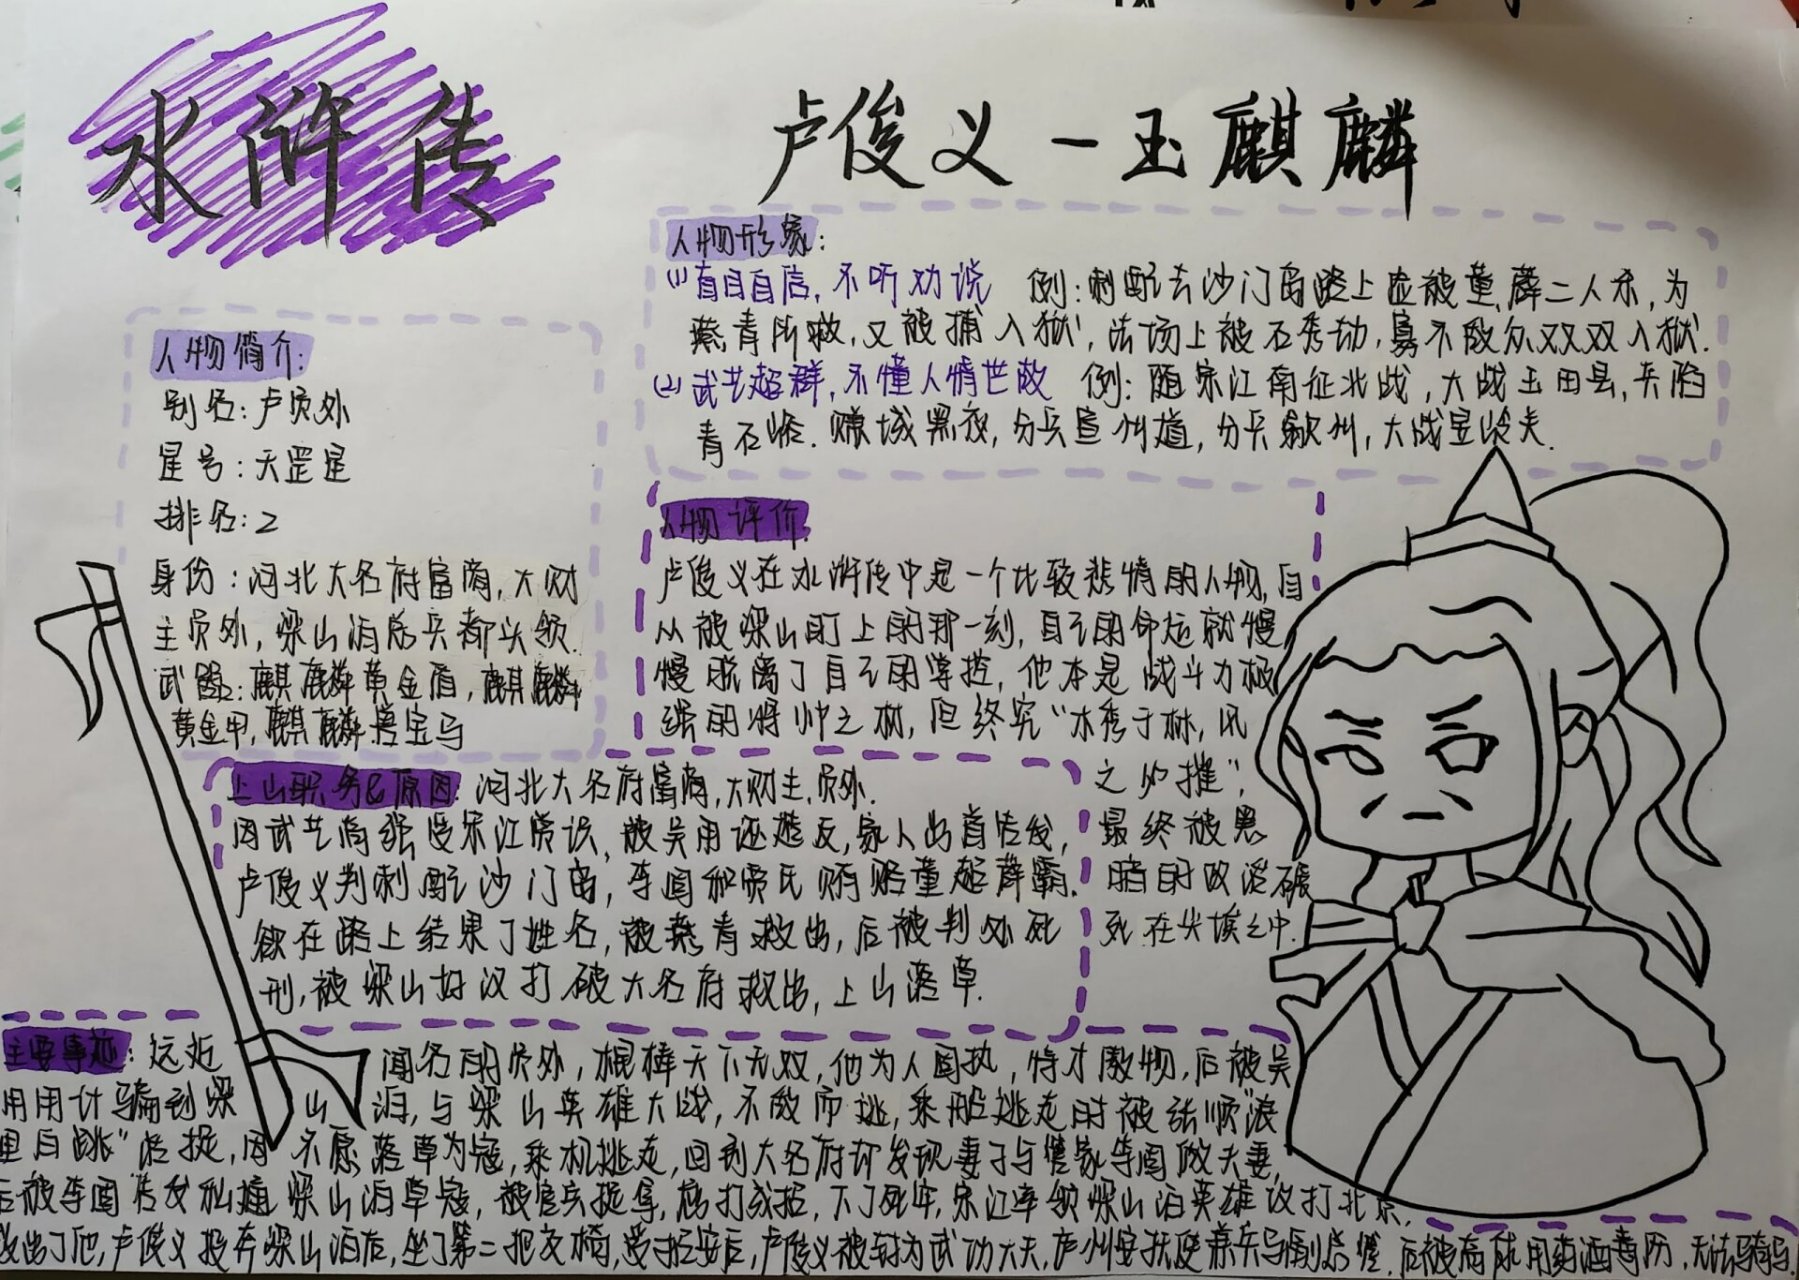 水浒传
卢俊义-玉麒麟
人物形象:
(1)盲目自信,不听劝说 例:刺配去沙门岛路上应被董,薛二人杀,为
燕青所救,又被捕入狱,法场上被石秀劫,寡不敌众双双入狱.
(2)武艺超群,不懂人情世故 例:随宋江南征北战,大战玉田县,兵陷
青石峪.赚城黑夜,分兵宣州道,分兵歙州,大战昱岭关.
人物简介:
别名:卢员外
星号:天罡星
排名:2
身份:河北大名府富商,大财
主员外,梁山泊总兵都头领.
武器:麒麟黄金盾,麒麟
黄金甲,麒麟兽宝马
人物评价
卢俊义在水浒传中是一个比较悲情的人物,自
从被梁山盯上的那一刻,自己的命运就慢
慢脱离了自己的掌控,他本是战斗力极
强的将帅之材,但终究"木秀于林,风
之必摧",
最终被黑
暗的政治碾
死在尘埃之中.
上山职务&原因:河北大名府富商,大财主,员外.
因武艺高强受宋江赏识,被吴用诬造反,家人出首告发,
卢俊义判刺配沙门岛,李固和贾氏贿赂董超薛霸.
欲在路上结果了姓名,被燕青救出,后被判处死
刑,被梁山好汉打破大名府救出,上山落草.
主要事迹:远近闻名的员外,棍棒天下无双,他为人固执,恃才傲物,后被吴
用用计骗到梁山泊,与梁山英雄大战,不敌而逃,乘船逃走时被张顺"浪
里白跳"活捉,因不愿落草为寇,乘机逃走,回到大名府却发现妻子与管家李固做夫妻,
后被李固告发私通梁山泊草寇,被官兵捉拿,屈打成招,下了死牢,宋江率领梁山泊英雄攻打北京,
救出了他,卢俊义投奔梁山泊后,坐了第二把交椅,受招安后,卢俊义被封为武功大夫,庐州安抚使兼兵马副总管.后被高俅用药酒毒历,无法骑马